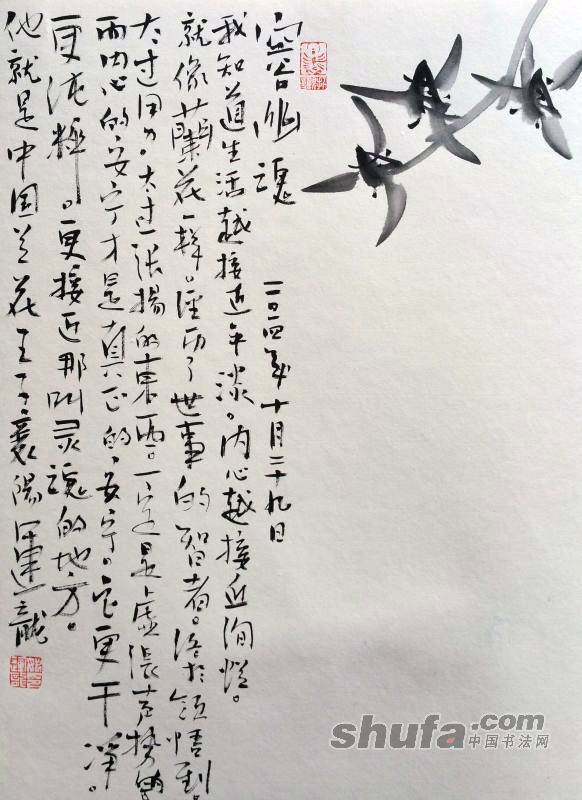 空谷幽魂
二〇一四年十月二十九日
我知道生活越接近平淡。内心越接近绚烂。
就像蘭花一样。经历了世事的智者。终於领悟到。
太过用力，太过张扬的東西。一定是虚張声势的
而内心的安宁才是真正的安宁。它更干净。
更纯粹。更接近那叫灵魂的地方。
他就是中国兰花王子襄陽龍
shufa.com
中国书法网